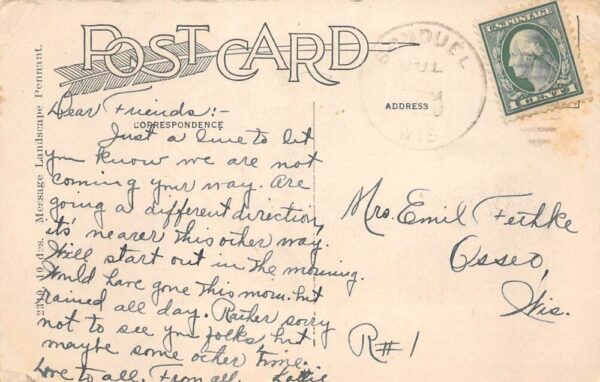 POST CARD
BONDUEL
JUL
WIS
U.S. POSTAGE
1 CENT 1
ADDRESS
CORRESPONDENCE
2310 10 des. Message Landscape Pennant.
Dear Friends:-
Just a line to let
you know we are not
coming your way. Are
going a different direction,
it's nearer this other way.
Will start out in the morning.
Would have gone this morn. but
rained all day. Rather sorry
not to see you folks but
maybe some other time.
Love to all. From all. Lottie
Mrs. Emil Fethke
Osseo,
Wis.
R#1